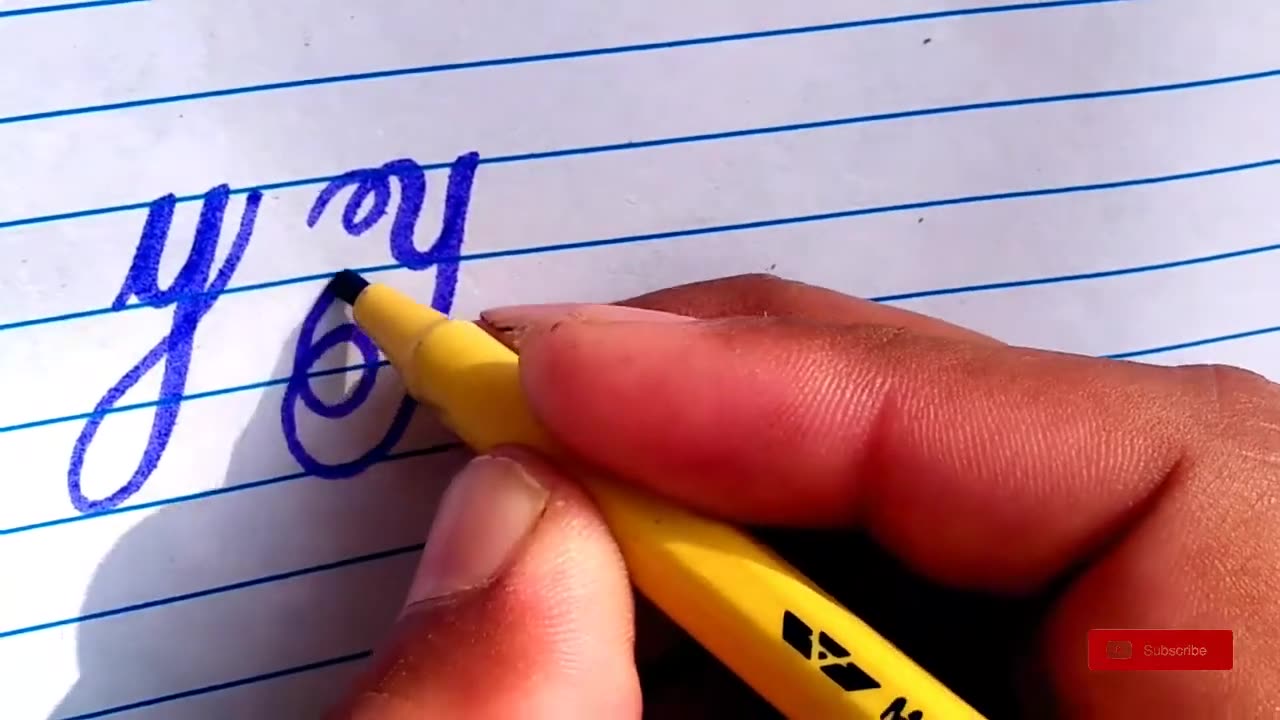 y y
Subscribe